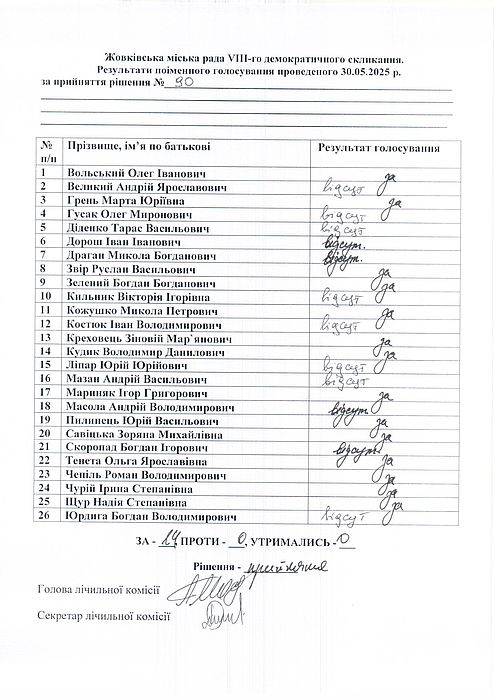 Жовківська міська рада VIII-го демократичного скликання.
Результати поіменного голосування проведеного 30.05.2025 р.
за прийняття рішення № 90
№ п/п Прізвище, ім’я по батькові Результат голосування
1 Вольський Олег Іванович за
2 Великий Андрій Ярославович відсут
3 Грень Марта Юріївна за
4 Гусак Олег Миронович відсут
5 Діденко Тарас Васильович відсут
6 Дорош Іван Іванович відсут.
7 Драган Микола Богданович відсут.
8 Звір Руслан Васильович за
9 Зелений Богдан Богданович за
10 Кильник Вікторія Ігорівна відсут
11 Кожушко Микола Петрович за
12 Костюк Іван Володимирович відсут
13 Креховець Зіновій Мар`янович за
14 Кудик Володимир Данилович за
15 Ліпар Юрій Юрійович відсут
16 Мазан Андрій Васильович відсут
17 Мариняк Ігор Григорович за
18 Масола Андрій Володимирович відсут
19 Пилипець Юрій Васильович за
20 Савіцька Зоряна Михайлівна за
21 Скоропад Богдан Ігорович відсут
22 Тенета Ольга Ярославівна за
23 Чепіль Роман Володимирович за
24 Чурій Ірина Степанівна за
25 Щур Надія Степанівна за
26 Юрдига Богдан Володимирович відсут
ЗА - 14, ПРОТИ - 0, УТРИМАЛИСЬ - 0
Рішення - прийняття
Голова лічильної комісії
Секретар лічильної комісії